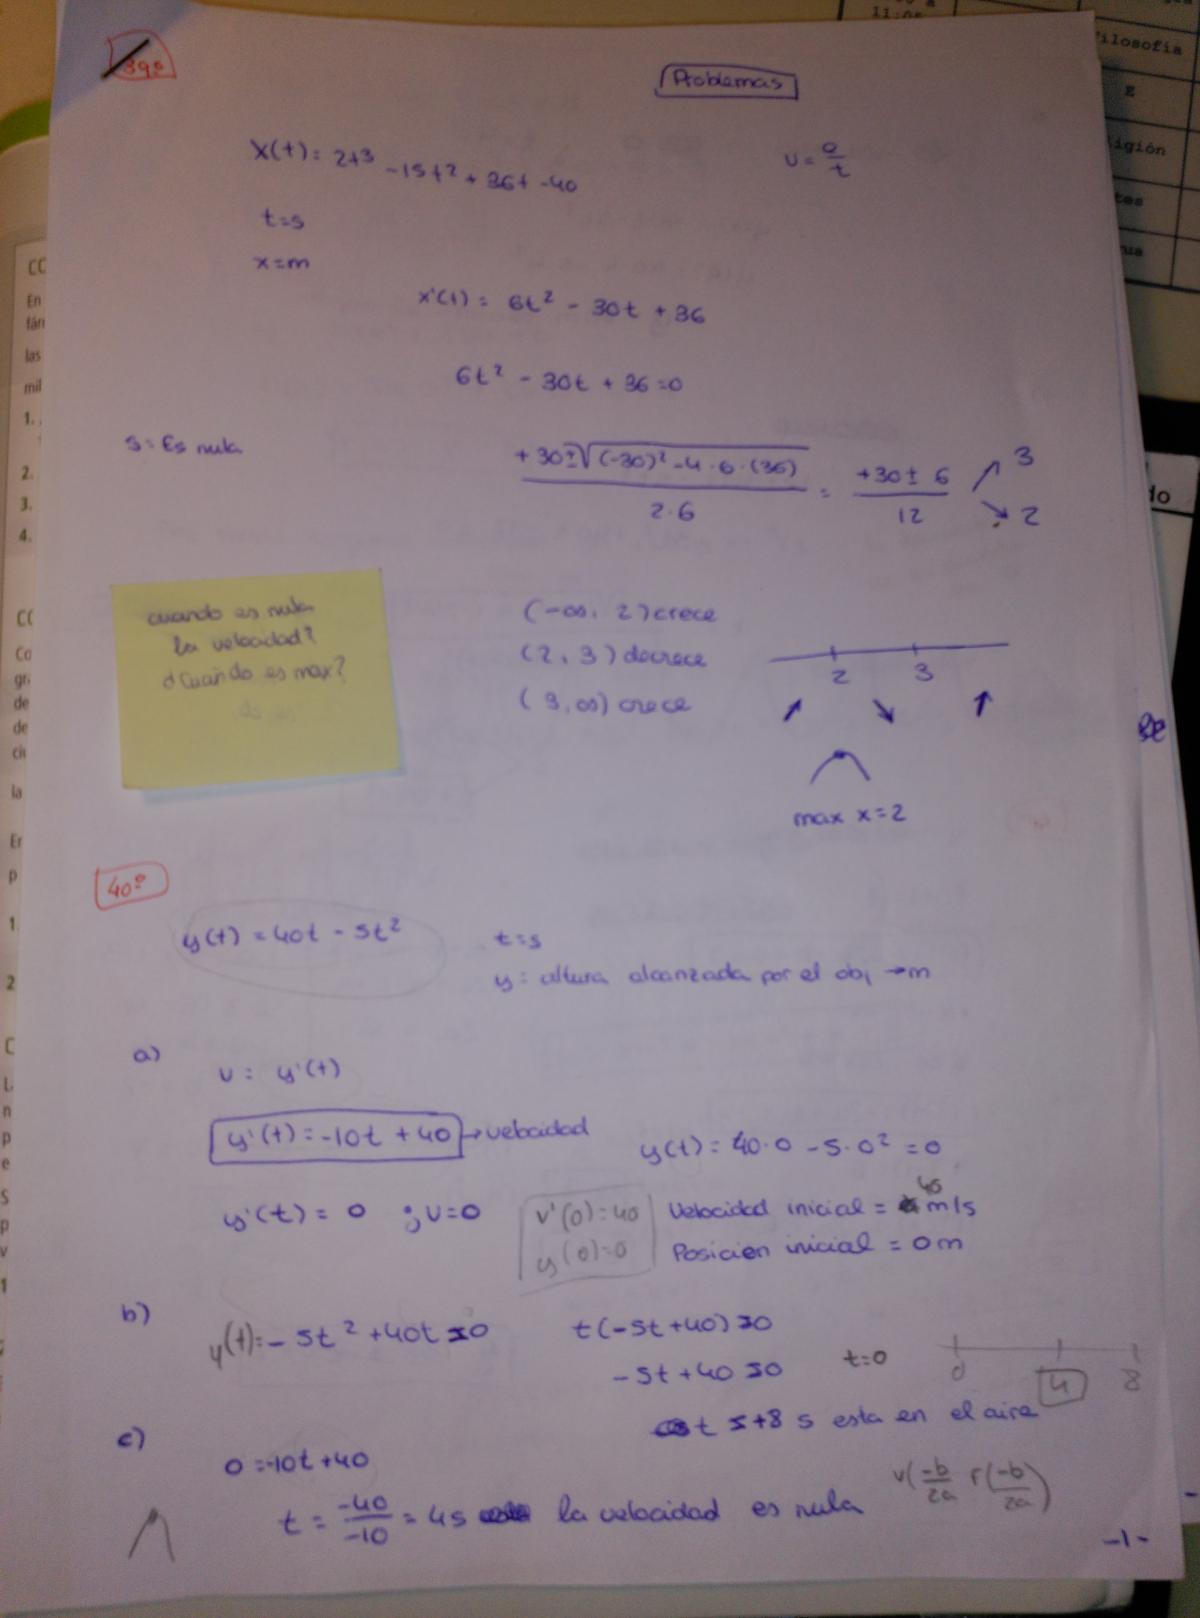 39º
Problemas
x(t) = 2t³ - 15t² + 36t - 40
v = e/t
t = s
x = m
x'(t) = 6t² - 30t + 36
6t² - 30t + 36 = 0
s = Es nula
+30 ± √(-30)² - 4 · 6 · (36) / 2·6 = +30 ± 6 / 12 ↗ 3 ↘ 2
cuando es nula
la velocidad?
¿Cuándo es max?
(-∞, 2) crece
(2, 3) decrece
(3, ∞) crece
2 3
max x = 2
40º
y(t) = 40t - 5t²
t = s
y = altura alcanzada por el obj → m
a)
v = y'(t)
y'(t) = -10t + 40 → velocidad
y(t) = 40·0 - 5·0² = 0
y'(t) = 0 ; v = 0
v'(0) = 40
y(0) = 0
Velocidad inicial = 40 m/s
Posicien inicial = 0m
b)
y(t) = -5t² + 40t ≥ 0
t(-5t + 40) ≥ 0
-5t + 40 ≥ 0
t = 0
0 4 8
t ≤ +8 s esta en el aire
c)
0 = -10t + 40
t = -40/-10 = 4s la velocidad es nula
v(-b/2a f(-b/2a)
-1-
CC
En
fán
las
mil
1.
2.
3.
4.
Co
gra
de
de
la
Er
p
1
2
11:05
Filosofía
E
ligión
do